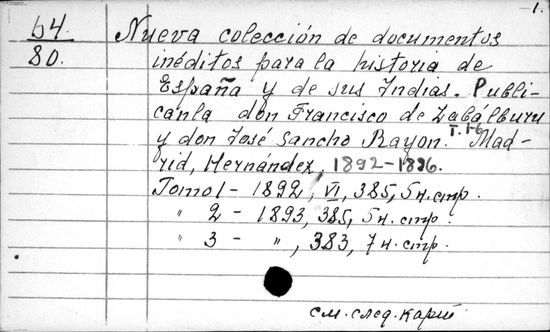 — 1.
64.
80.
Nueva colección de documentos
inéditos para la historia de
España y de sus Indias. Publi-
canla don Francisco de Zabálburu
y don José Sancho Rayon. T. 1-6 Mad-
rid, Hernández, 1892-1896.
Tomo 1 - 1892, VI, 385, 5 н. стр.
" 2 - 1893, 385, 5 н. стр.
" 3 - ", 383, 7 н. стр.
см. след. карт